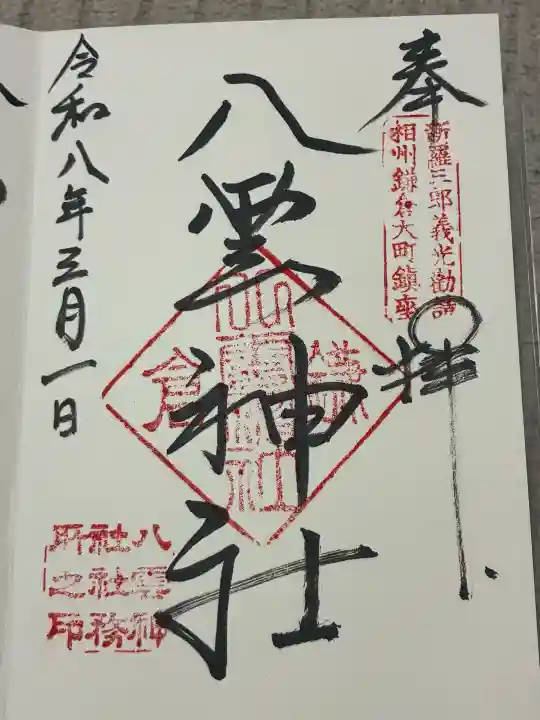 奉拝
新羅三郎義光勧請
相州鎌倉大町鎮座
八雲神社
鎌倉
八雲神社
社務
所之印
令和八年三月一日